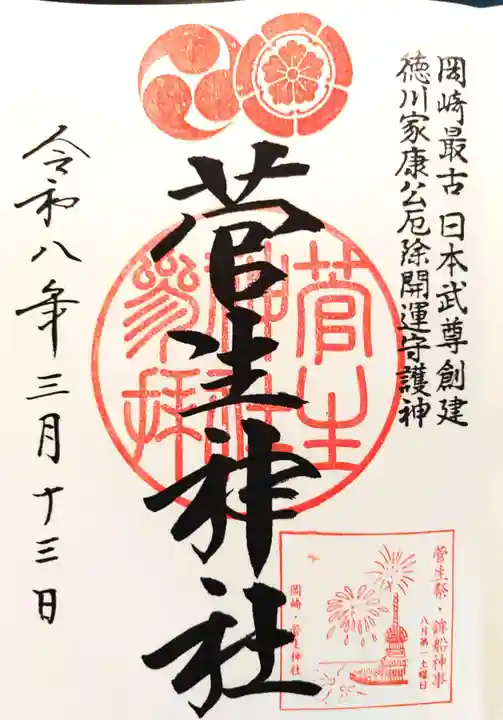 岡崎最古 日本武尊創建
徳川家康公厄除開運守護神
菅生神社
菅生
神社
参拝
令和八年三月十三日
菅生祭・鉾船神事
八月第一土曜日
岡崎・菅生神社